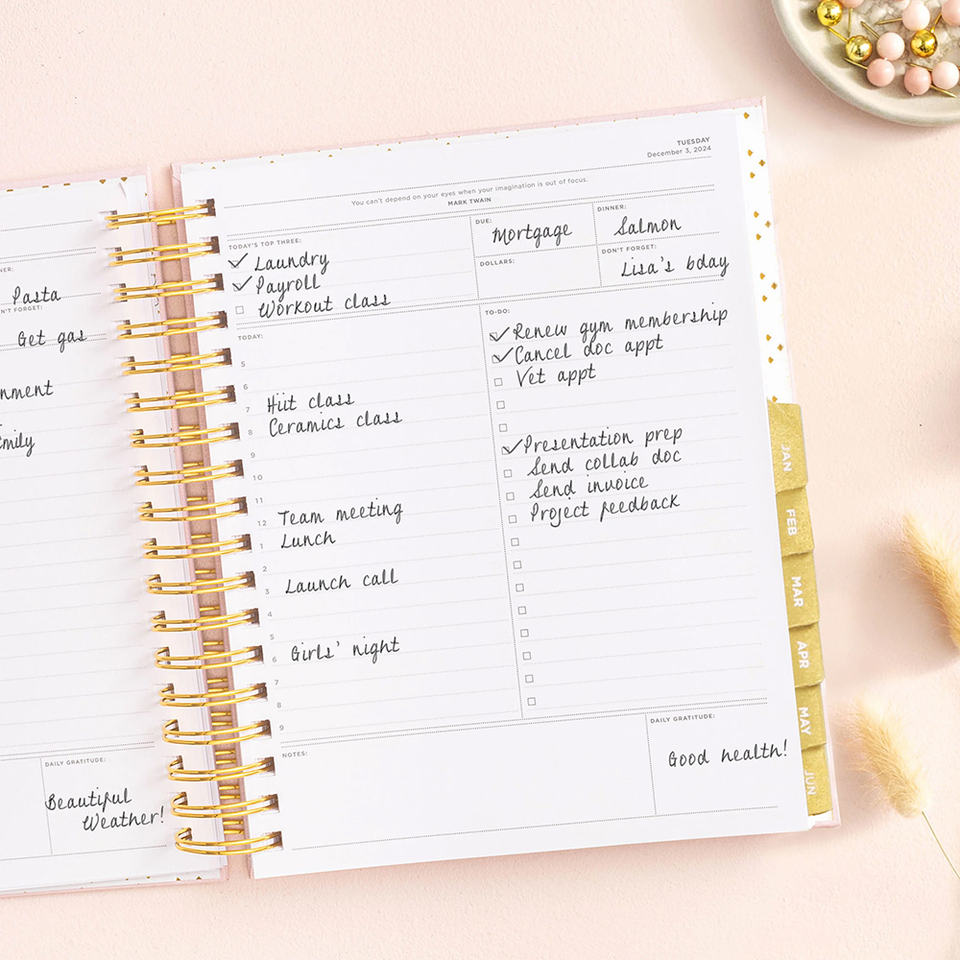 NER:
Pasta
N'T FORGET:
Get gas
nment
Emily
DAILY GRATITUDE:
Beautiful
Weather!
TUESDAY
December 3, 2024
You can't depend on your eyes when your imagination is out of focus.
MARK TWAIN
TODAY'S TOP THREE:
Laundry
Payroll
Workout class
DUE:
Mortgage
DINNER:
Salmon
DOLLARS:
DON'T FORGET:
Lisa's bday
TODAY:
5
6
7 Hiit class
8 Ceramics class
9
10
11
12 Team meeting
1 Lunch
2
3 Launch call
4
5
6 Girls' night
7
8
9
TO-DO:
Renew gym membership
Cancel doc appt
Vet appt
Presentation prep
Send collab doc
Send invoice
Project feedback
NOTES:
DAILY GRATITUDE:
Good health!
JAN
FEB
MAR
APR
MAY
JUN